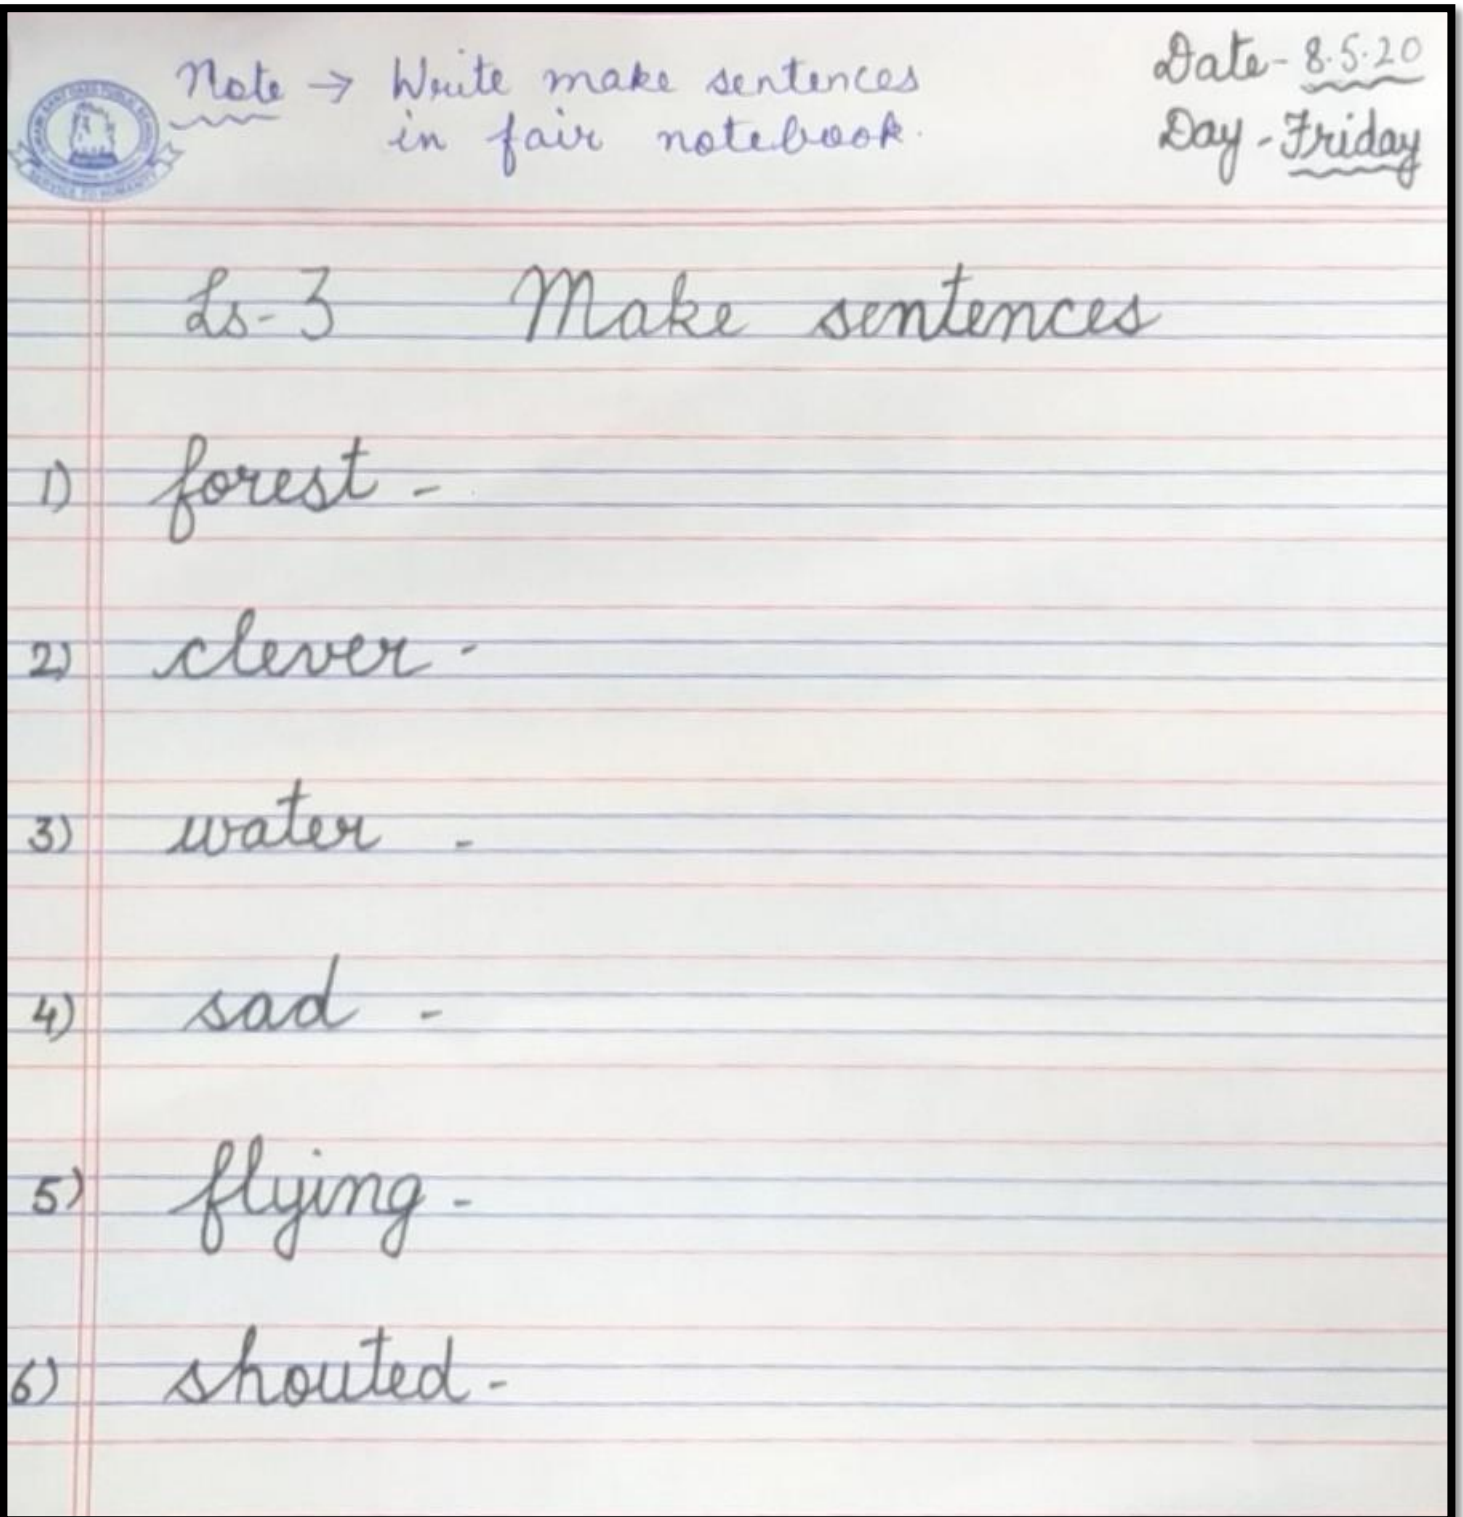 Note → Write make sentences
in fair notebook.
Date - 8.5.20
Day - Friday
SERVICE TO HUMANITY
Ls-3 Make sentences
1) forest -
2) clever -
3) water -
4) sad -
5) flying -
6) shouted -